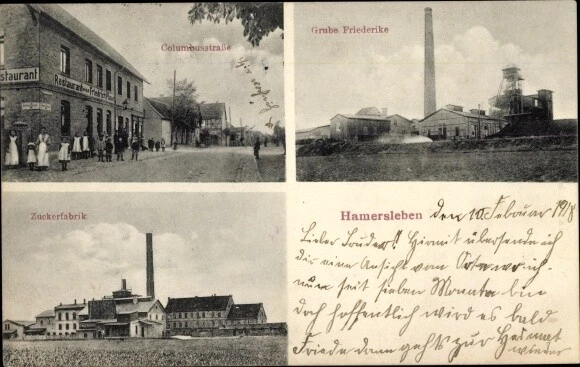 Columbusstraße
Restaurant
Restaurant
Grube Friederike
Zuckerfabrik
Hamersleben den 10. Februar 1918
Lieber Bruder! Hiermit übersende ich
dir eine Ansicht vom Orte wo ich
nun seit sieben Monate bin
doch hoffentlich wird es bald
Friede dann gehts zur Heimat
wieder